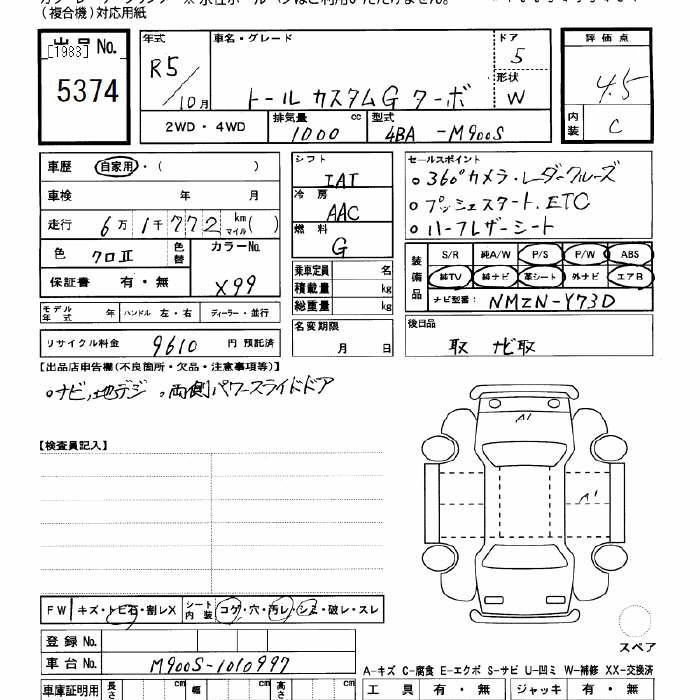 (複合機)対応用紙
出品No.
[1983]
5374
年式
R5/10月
車名・グレード
トール カスタムG ターボ
ドア
5
形状
W
2WD・4WD
排気量 1000 cc
型式 4BA -M900S
評価点
4.5
内装 C
車歴 自家用・( )
車検 年 月
走行 6万1千772km マイル( )
色 クロII 色替
カラーNo. X99
保証書 有・無
モデル年式 年 ハンドル 左・右 ディーラー・並行
リサイクル料金 9610 円 預託済
シフト
IAT
冷房
AAC
燃料
G
乗車定員 名
積載量 kg
総重量 kg
名変期限
月 日
セールスポイント
○360°カメラ・レーダークルーズ
○プッシュスタート、ETC
○ハーフレザーシート
装備品 S/R 純A/W P/S P/W ABS
純TV 純ナビ 革シート 外ナビ エアB
ナビ型番: NMZN-Y73D
後日品
取 ナビ取
【出品店申告欄(不良箇所・欠品・注意事項等)】
○ナビ、地デジ ○両側パワースライドドア
【検査員記入】
A1
A1
FW キズ・トビ石・割レX シート内装 コゲ・穴・汚レ・シミ・破レ・スレ
登録No.
車台No. M900S-1010997
スペア
A-キズ C-腐食 E-エクボ S-サビ U-凹ミ W-補修 XX-交換済
車庫証明用 長さ cm 幅 cm 高さ cm
工具 有・無 ジャッキ 有・無